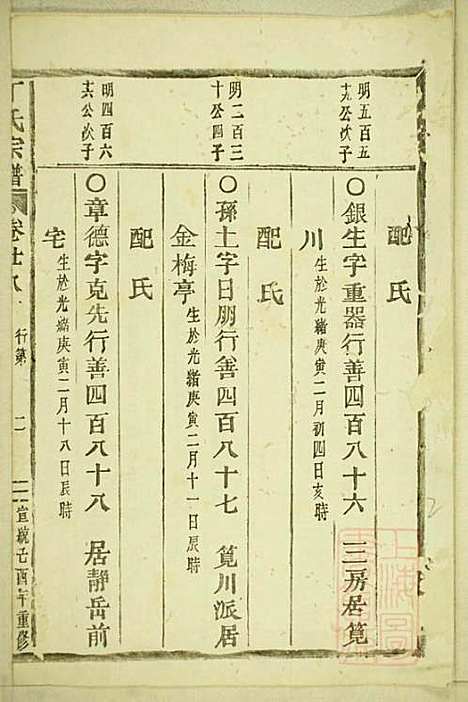 配氏
明五百五
十九公次子
○銀生字重器行善四百八十六 三房居筧
川 生於光緒庚寅二月初四日亥時
配氏
明二百三
十公四子
○孫土字日朋行善四百八十七 筧川派居
金梅亭 生於光緒庚寅二月十一日辰時
配氏
明四百六
十六公次子
○章德字克先行善四百八十八 居靜岳前
宅 生於光緒庚寅二月十八日辰時
丁氏宗譜 卷廿八 行第 二 宣統 酉年重修
上海圖